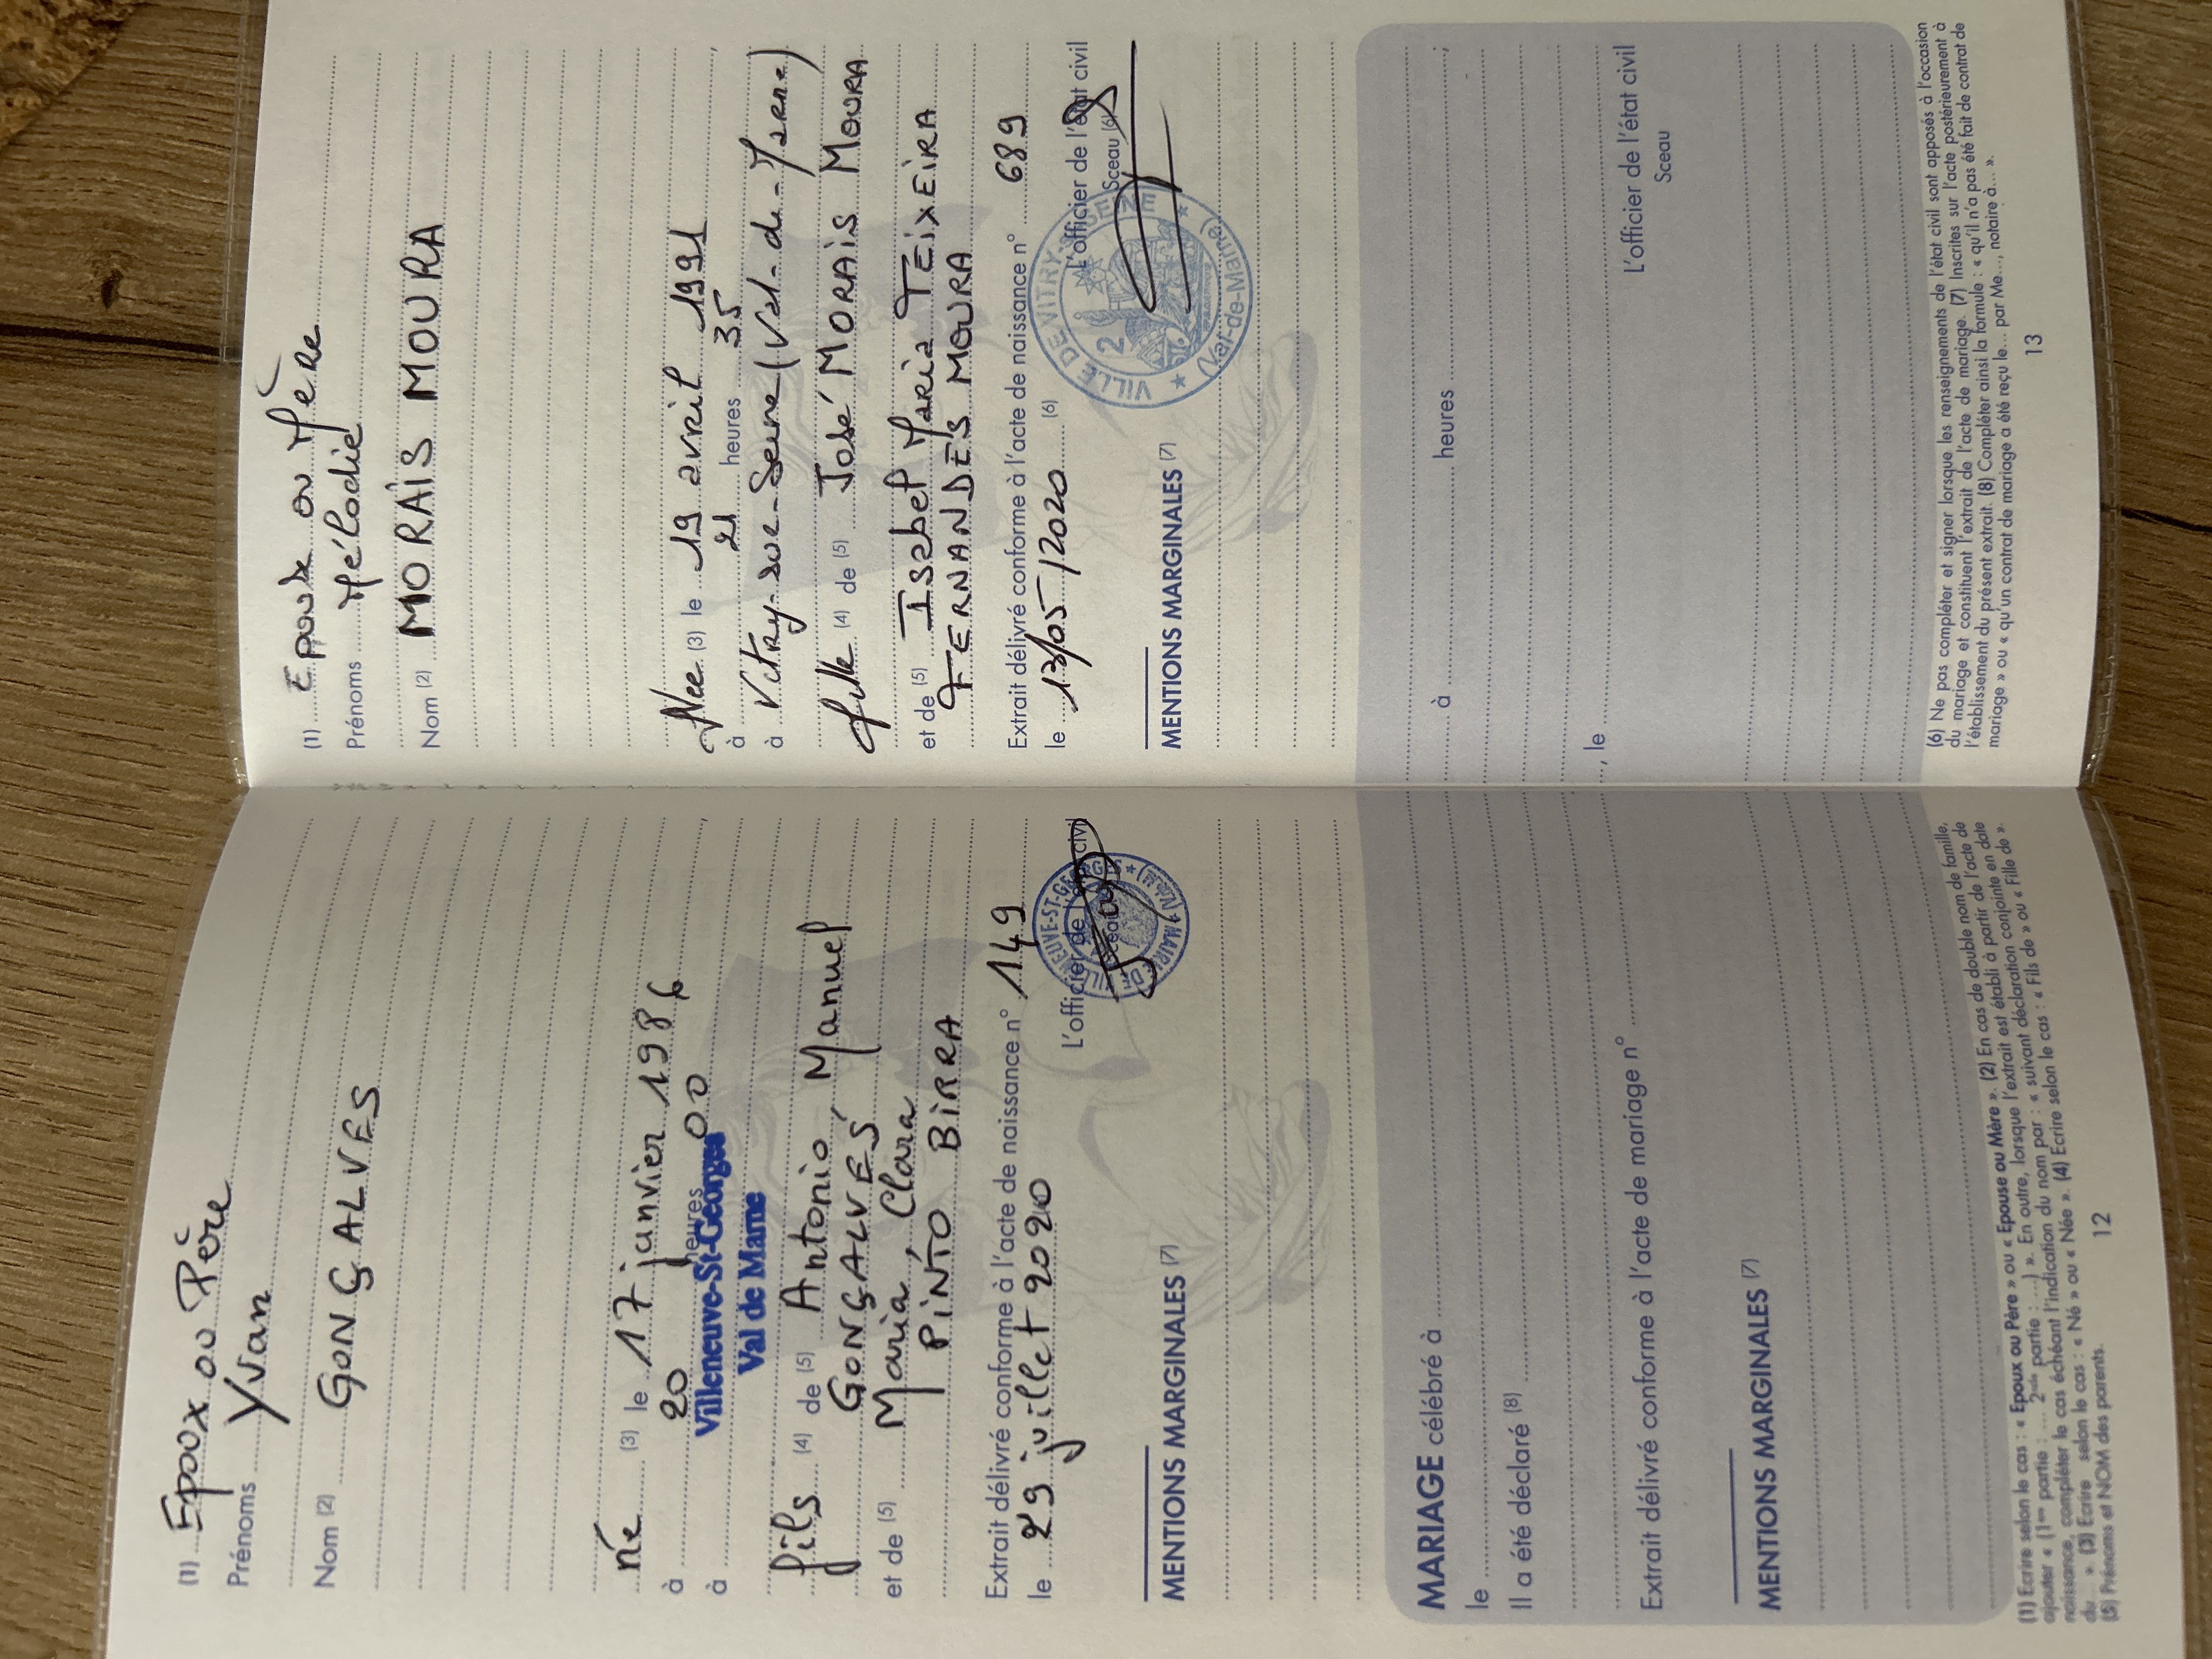 (1) Epoux ou Père
Prénoms Yvan
Nom (2) GONÇALVES
né (3) le 17 janvier 1986
à 20 heures 00
à Villeneuve-St-Georges
Val de Marne
fils (4) de (5) Antonio Manuel
GONÇALVES
et de (5) Maria Clara
PINTO BIRRA
Extrait délivré conforme à l'acte de naissance n° 149
le 29 juillet 2020
L'officier de l'état civil
Sceau (6)
MENTIONS MARGINALES (7)
MARIAGE célébré à
le
Il a été déclaré (8)
Extrait délivré conforme à l'acte de mariage n°
MENTIONS MARGINALES (7)
(1) Ecrire selon le cas : « Epoux ou Père » ou « Epouse ou Mère ». (2) En cas de double nom de famille,
ajouter « (1ère partie : ..... 2nde partie : .....) ». En outre, lorsque l'extrait est établi à partir de l'acte de
naissance, compléter le cas échéant l'indication du nom par : « suivant déclaration conjointe en date
du ... ». (3) Ecrire selon le cas : « Né » ou « Née ». (4) Ecrire selon le cas : « Fils de » ou « Fille de ».
(5) Prénoms et NOM des parents.
12
(1) Epouse ou Mère
Prénoms Mélodie
Nom (2) MORAIS MOURA
Née (3) le 19 avril 1991
à 21 heures 35
à Vitry-sur-Seine (Val-de-Marne)
fille (4) de (5) José MORAIS MOURA
et de (5) Isabel Maria TEIXEIRA
FERNANDES MOURA
Extrait délivré conforme à l'acte de naissance n° 689
le 13/05/2020 (6)
L'officier de l'état civil
Sceau (6)
VILLE DE VITRY-S-SEINE
2
(Val-de-Marne)
MENTIONS MARGINALES (7)
à heures ;
, le
L'officier de l'état civil
Sceau
(6) Ne pas compléter et signer lorsque les renseignements de l'état civil sont apposés à l'occasion
du mariage et constituent l'extrait de l'acte de mariage. (7) Inscrites sur l'acte postérieurement à
l'établissement du présent extrait. (8) Compléter ainsi la formule : « qu'il n'a pas été fait de contrat de
mariage » ou « qu'un contrat de mariage a été reçu le... par Me..., notaire à... ».
13